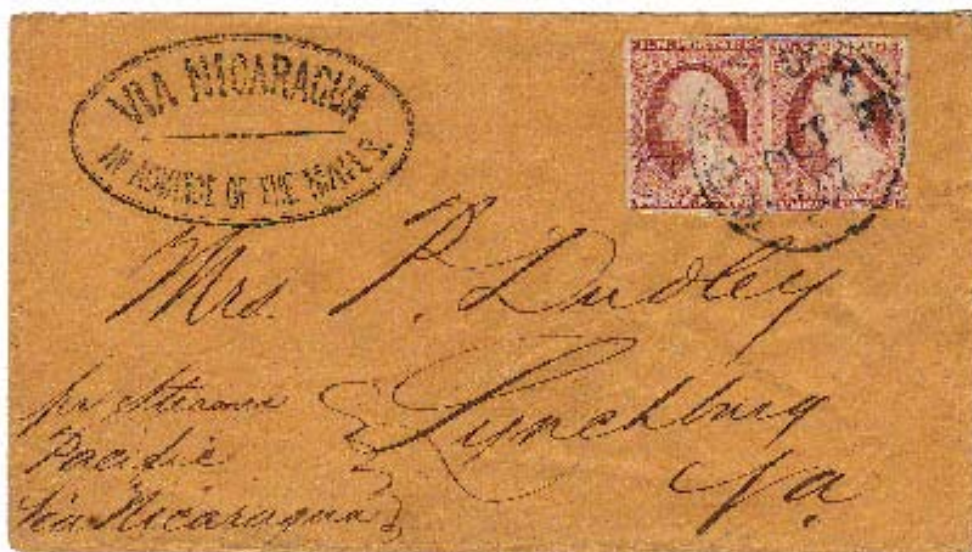 VIA NICARAGUA
IN ADVANCE OF THE MAILS.
OCT
Mrs. P. Dudley
Lynchburg
Va.
pr Steamer
Pacific
Via Nicaragua